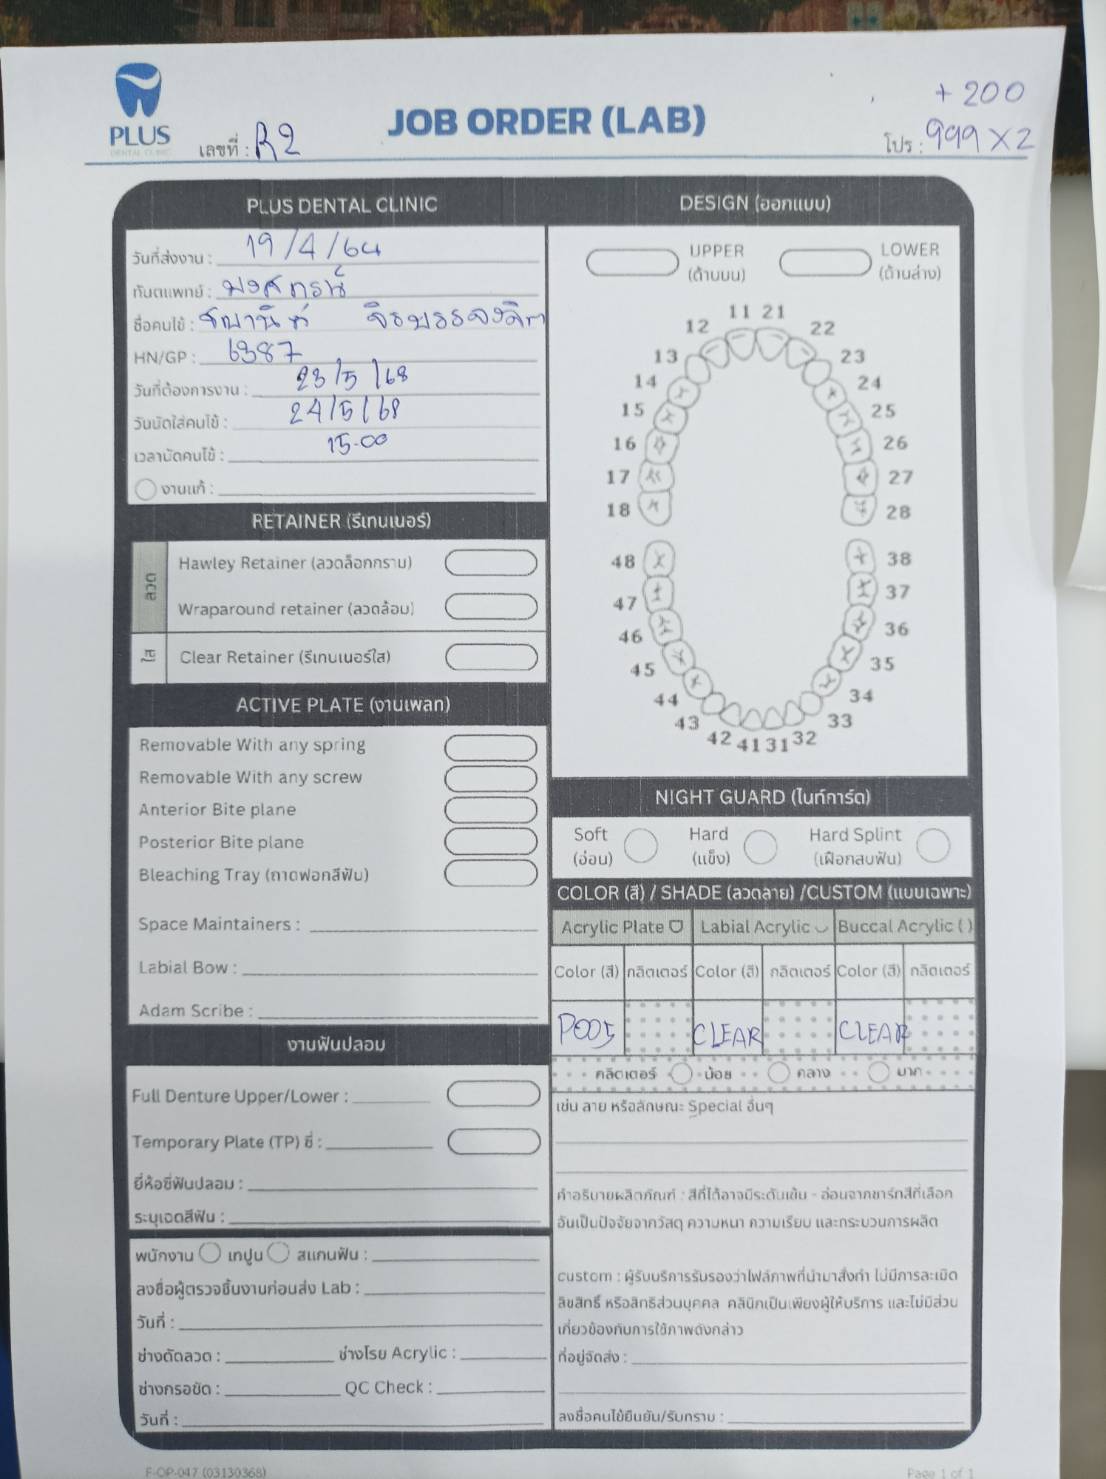 PLUS
DENTAL CLINIC
เลขที่ : R2
JOB ORDER (LAB)
+ 200
โปร : 999 X 2
PLUS DENTAL CLINIC
วันที่ส่งงาน : 19/4/64
ทันตแพทย์ :
ชื่อคนไข้ :
HN/GP : 6387
วันที่ต้องการงาน : 23/5/68
วันนัดใส่คนไข้ : 24/5/68
เวลานัดคนไข้ : 15.00
งานแก้ :
RETAINER (รีเทนเนอร์)
ลวด
Hawley Retainer (ลวดล็อกกราม)
Wraparound retainer (ลวดล้อม)
ใส
Clear Retainer (รีเทนเนอร์ใส)
ACTIVE PLATE (งานเพลท)
Removable With any spring
Removable With any screw
Anterior Bite plane
Posterior Bite plane
Bleaching Tray (ถาดฟอกสีฟัน)
Space Maintainers :
Labial Bow :
Adam Scribe :
งานฟันปลอม
Full Denture Upper/Lower :
Temporary Plate (TP) ซี่ :
ยี่ห้อซี่ฟันปลอม :
ระบุเฉดสีฟัน :
พนักงาน เทปูน สแกนฟัน :
ลงชื่อผู้ตรวจชิ้นงานก่อนส่ง Lab :
วันที่ :
ช่างดัดลวด : ช่างโรย Acrylic :
ช่างกรอขัด : QC Check :
วันที่ :
F-OP-047 (03130368)
DESIGN (ออกแบบ)
UPPER
(ด้านบน)
LOWER
(ด้านล่าง)
11 21
12 22
13 23
14 24
15 25
16 26
17 27
18 28
48 38
47 37
46 36
45 35
44 34
43 33
42 41 31 32
NIGHT GUARD (ไนท์การ์ด)
Soft
(อ่อน)
Hard
(แข็ง)
Hard Splint
(เฝือกสบฟัน)
COLOR (สี) / SHADE (ลวดลาย) /CUSTOM (แบบเฉพาะ)
Acrylic Plate Labial Acrylic Buccal Acrylic ( )
Color (สี) กลิตเตอร์ Color (สี) กลิตเตอร์ Color (สี) กลิตเตอร์
P005 CLEAR CLEAR
กลิตเตอร์ น้อย กลาง มาก
เช่น ลาย หรือลักษณะ Special อื่นๆ
คำอธิบายผลิตภัณฑ์ : สีที่ได้อาจมีระดับเข้ม - อ่อนจากชาร์ทสีที่เลือก
อันเป็นปัจจัยจากวัสดุ ความหนา ความเรียบ และกระบวนการผลิต
custom : ผู้รับบริการรับรองว่าไฟล์ภาพที่นำมาสั่งทำ ไม่มีการละเมิด
ลิขสิทธิ์ หรือสิทธิส่วนบุคคล คลินิกเป็นเพียงผู้ให้บริการ และไม่มีส่วน
เกี่ยวข้องกับการใช้ภาพดังกล่าว
ที่อยู่จัดส่ง :
ลงชื่อคนไข้ยืนยัน/รับทราบ :
Page 1 of 1